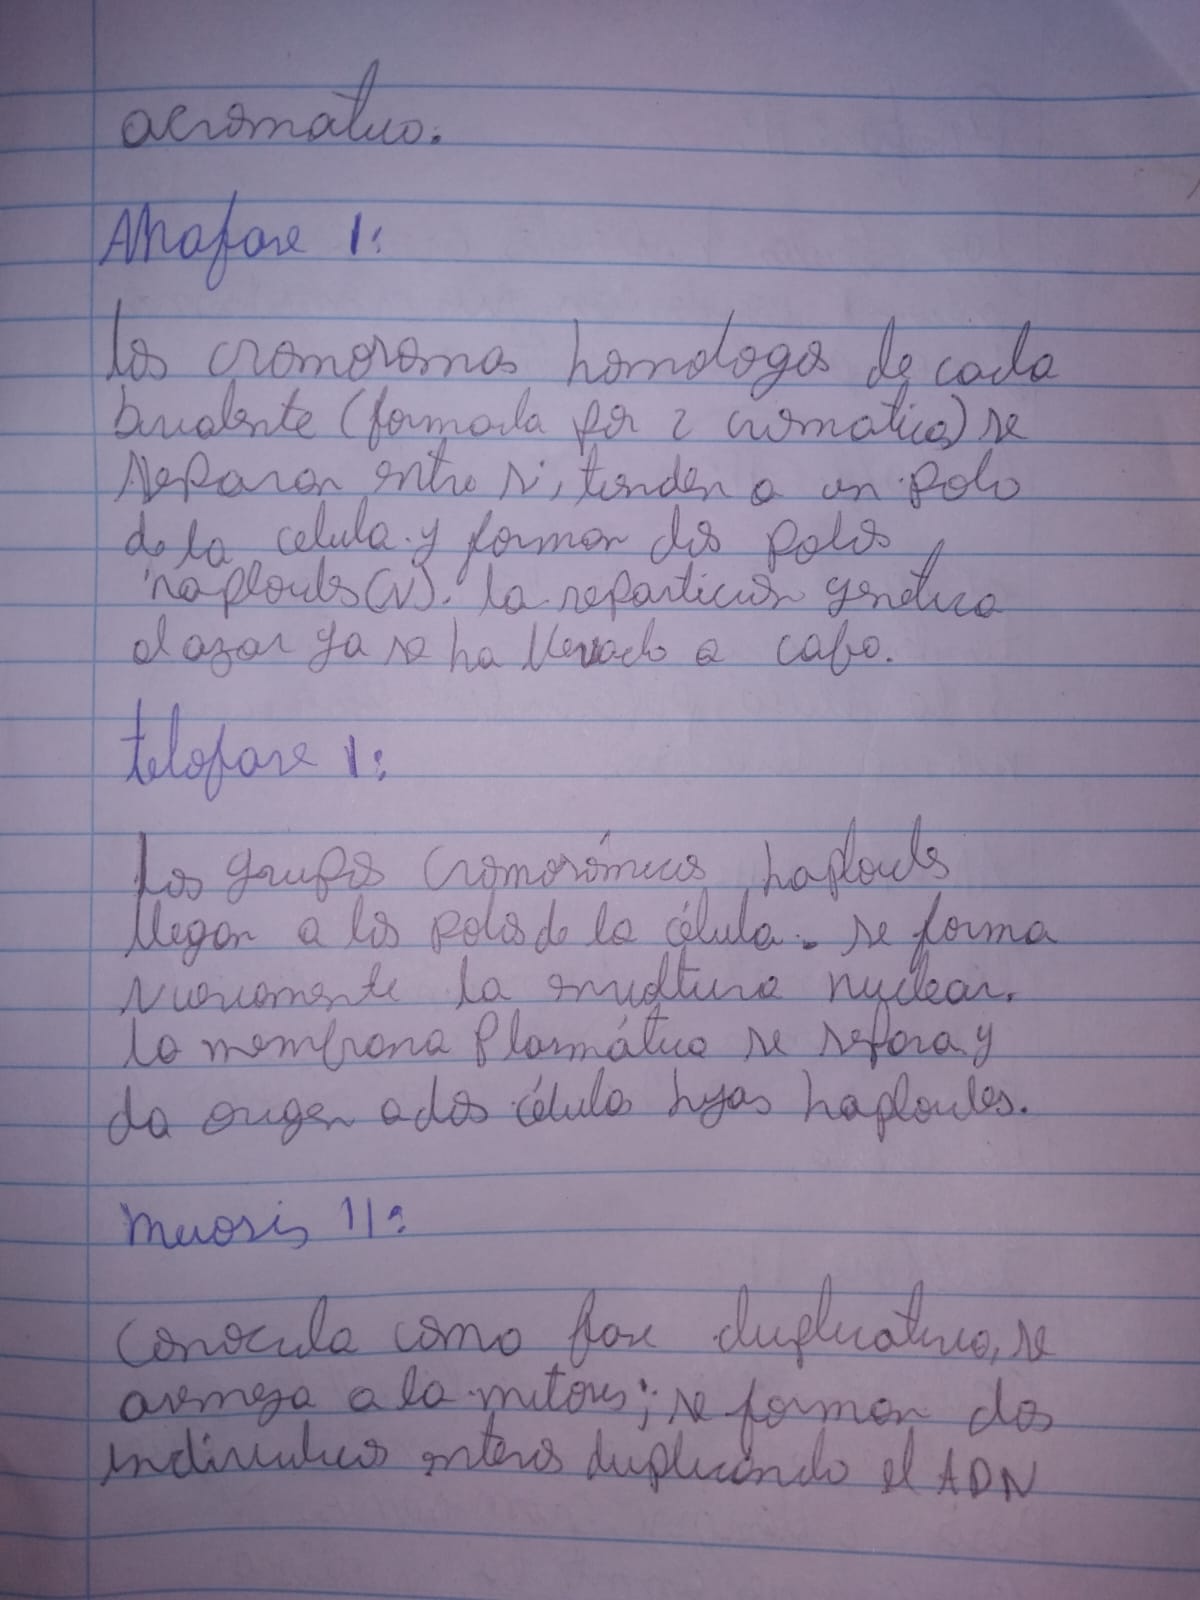 acromatico.
Anafase 1:
Los cromosomas homologos de cada
bivalente (formada por 2 cromatica) se
separan entre si, tienden a un polo
de la celula y forman dos polos
haploides (N). la repartición genética
al azar ya se ha llevado a cabo.
telofase 1:
Los grupos cromosómicos haploides
llegan a los polos de la célula. se forma
nuevamente la envoltura nuclear.
la membrana Plasmática se separa y
da origen a dos célula hijas haploides.
meiosis 11:
Conocida como fase duplicativa, se
asemeja a la mitosis; se forman dos
individuos enteros duplicando el ADN